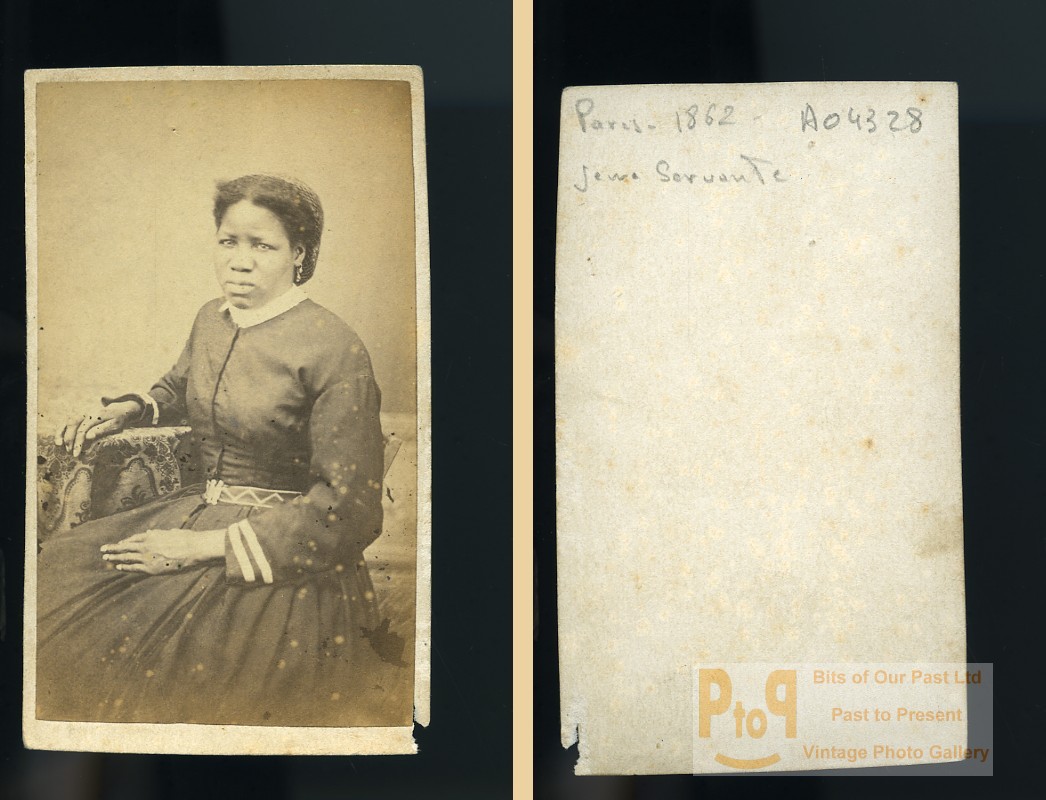 Paris - 1862 - A04328
jeune Servante
PtoP
Bits of Our Past Ltd
Past to Present
Vintage Photo Gallery